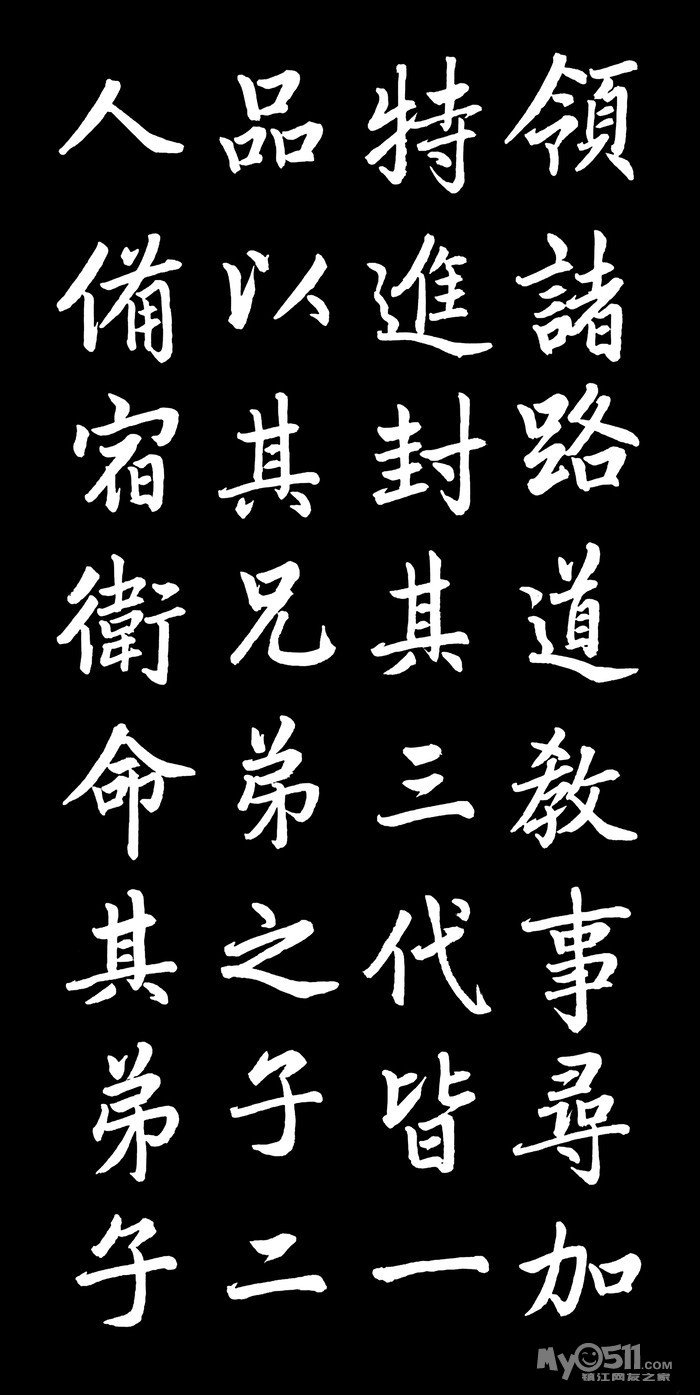 領諸路道教事尋加
特進封其三代皆一
品以其兄弟之子二
人備宿衛命其弟子
My0511.COM
镇江网友之家